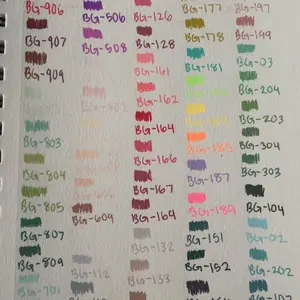 BG-906
BG-907
BG-909
BG-803
BG-804
BG-805
BG-807
BG-809
BG-701
BG-506
BG-508
BG-609
BG-112
BG-126
BG-128
BG-161
BG-162
BG-164
BG-166
BG-167
BG-169
BG-132
BG-133
BG-177
BG-178
BG-181
BG-187
BG-189
BG-151
BG-152
BG-197
BG-199
BG-03
BG-204
BG-203
BG-303
BG-304
BG-104
BG-02
BG-202